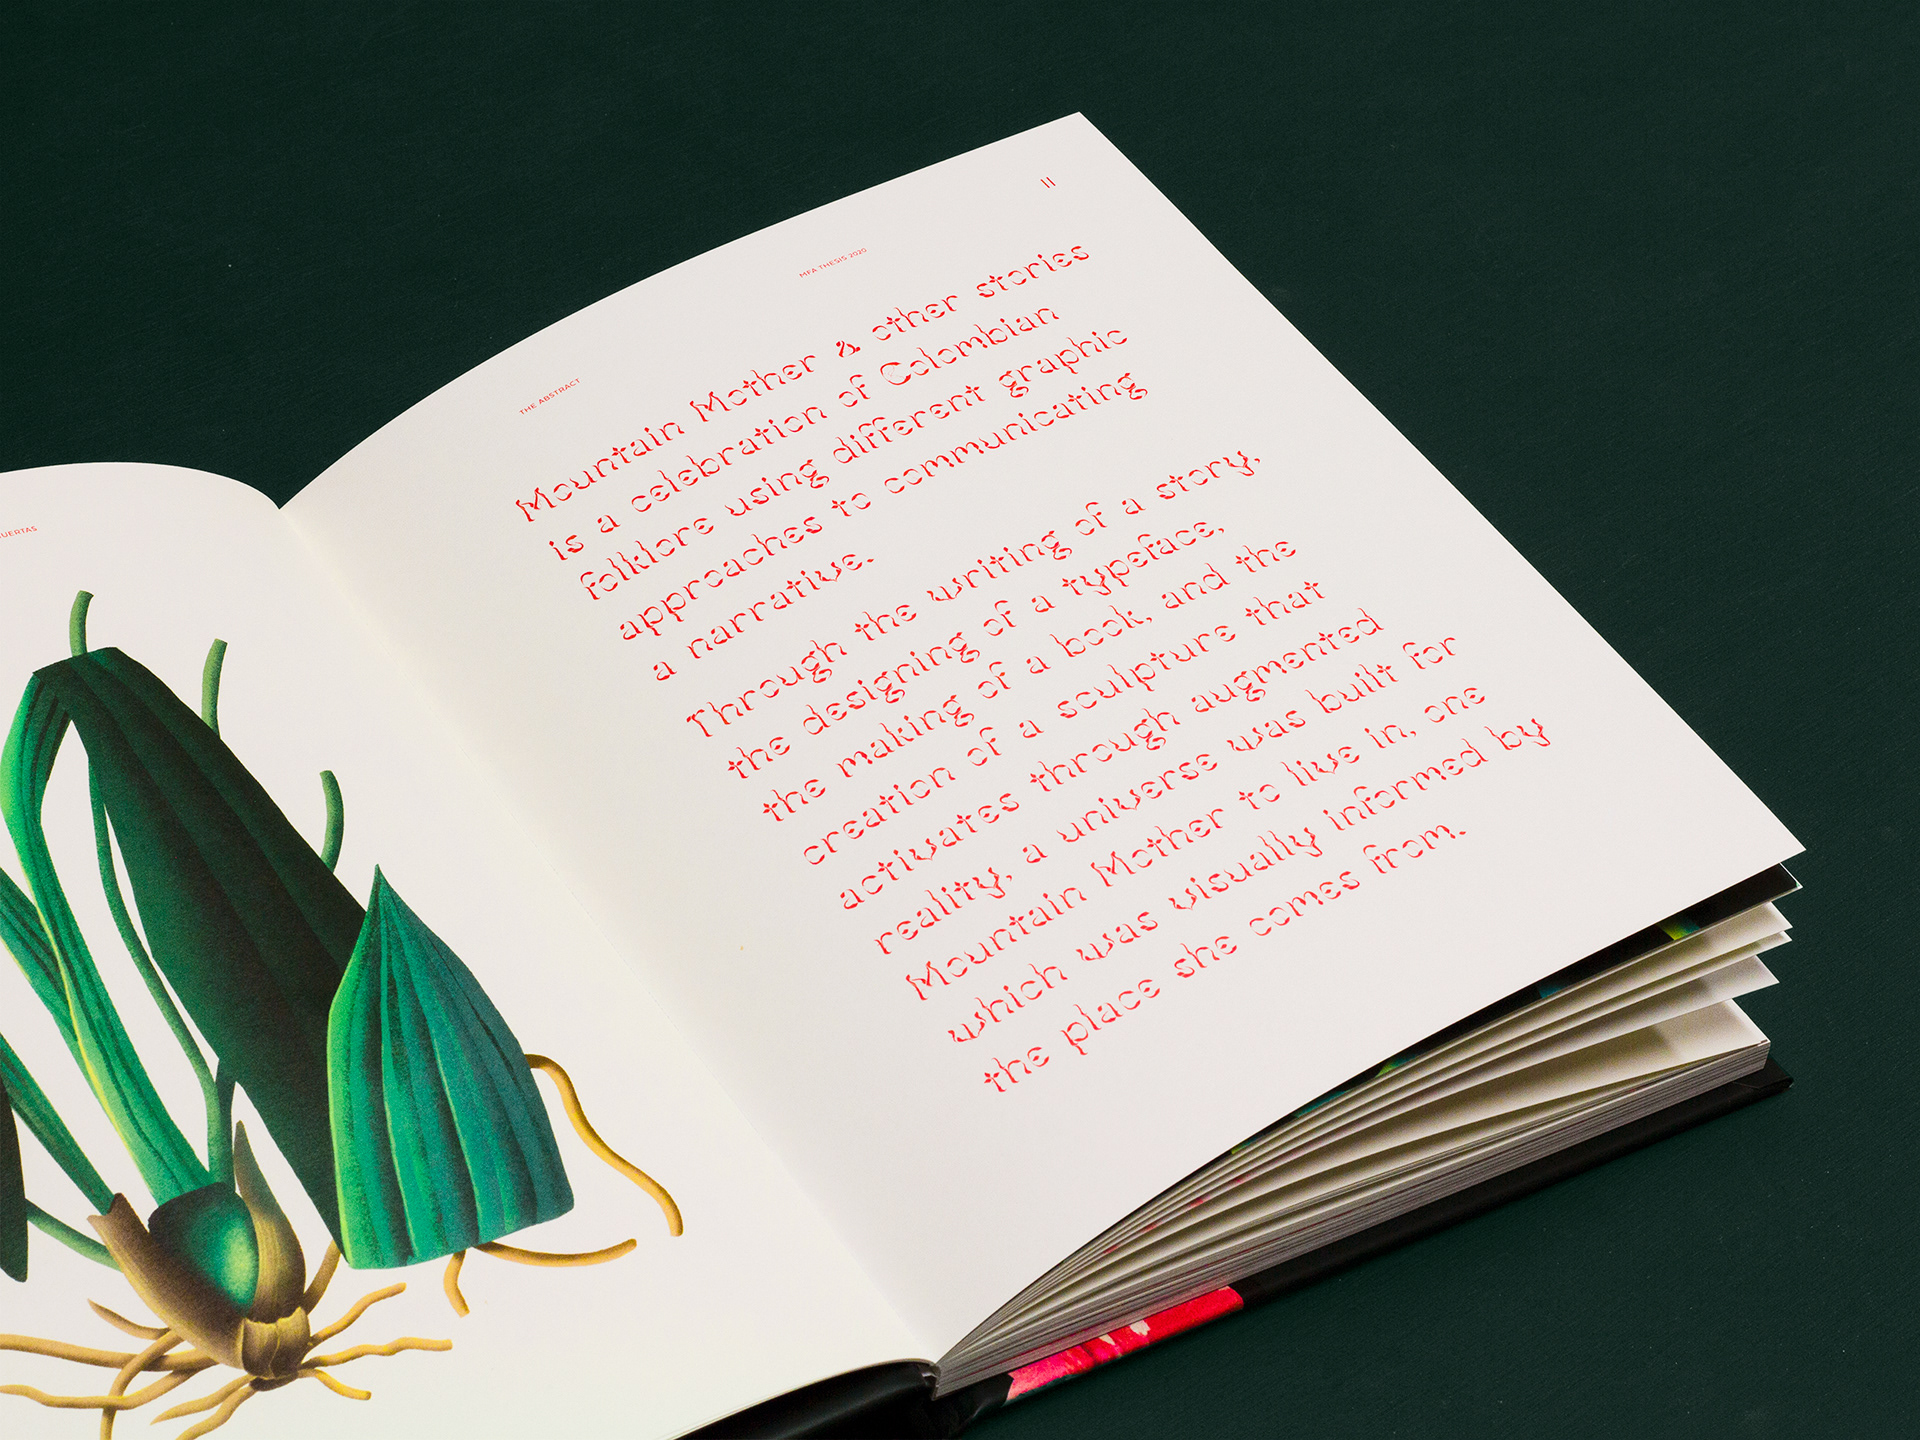 THE ABSTRACT
MFA THESIS 2020
11
Mountain Mother & other stories
is a celebration of Colombian
folklore using different graphic
approaches to communicating
a narrative.
Through the writing of a story,
the designing of a typeface,
the making of a book, and the
creation of a sculpture that
activates through augmented
reality, a universe was built for
Mountain Mother to live in, one
which was visually informed by
the place she comes from.